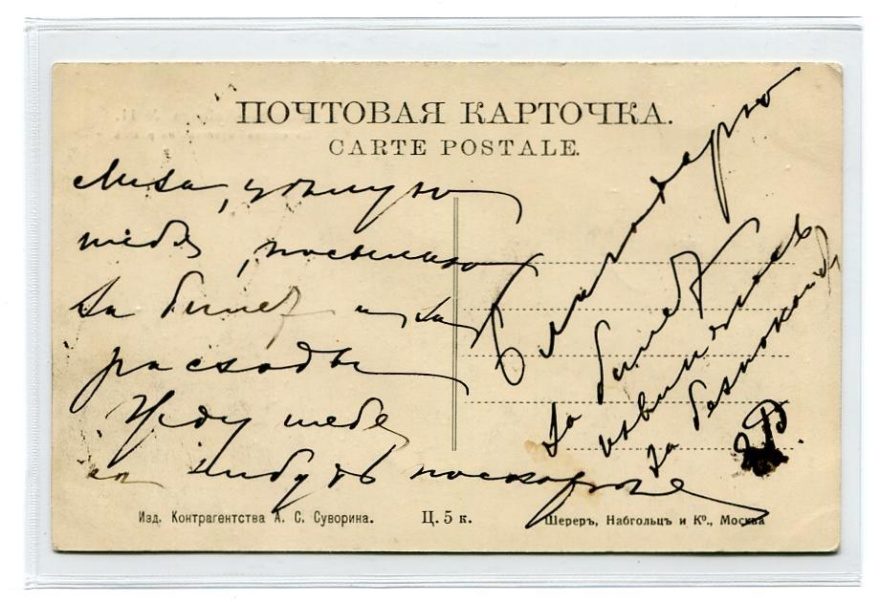 ПОЧТОВАЯ КАРТОЧКА.
CARTE POSTALE.
Лиза, целую
тебя, посылаю
за билет и на
расходы
Жду тебя
нибудь поскорее
Благодарю
за билет
извиняюсь
за безпокойс
Изд. Контрагентства А. С. Суворина.
Ц. 5 к.
Шереръ, Набгольцъ и Кº., Москва